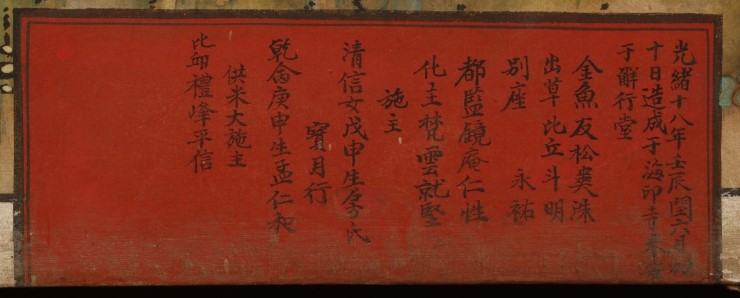 光緒十八年壬辰閏六月初
十日造成于海印寺奉
于解行堂
金魚友松爽洙
出草比丘斗明
別座 永祐
都監鏡庵仁性
化主梵雲就堅
施主
清信女戊申生李氏
寶月行
乾命庚申生孟仁和
供米大施主
比丘禮峰平信